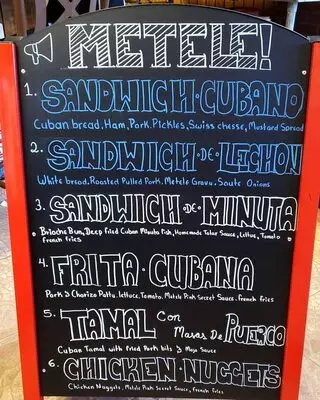 METELE!
1. SANDWICH·CUBANO
Cuban bread, Ham, Pork, Pickles, Swiss chesse, Mustard Spread
2. SANDWICH·DE·LECHON
White bread, Roasted Pulled Pork, Metele Gravy, Saute Onions
3. SANDWICH·DE·MINUTA
Brioche Bun, Deep fried Cuban Minuta Fish, Homemade Tatar Sauce, Lettuce, Tomato
French fries
4. FRITA·CUBANA
Pork & Chorizo Patty, lettuce, Tomato, Metele Pink Secret Sauce, French fries
5. TAMAL Con
Masas De PUERCO
Cuban Tamal with fried Pork bits & Mojo Sauce
6. CHICKEN·NUGGETS
Chicken Nuggets, Metele Pink Secret Sauce, French fries